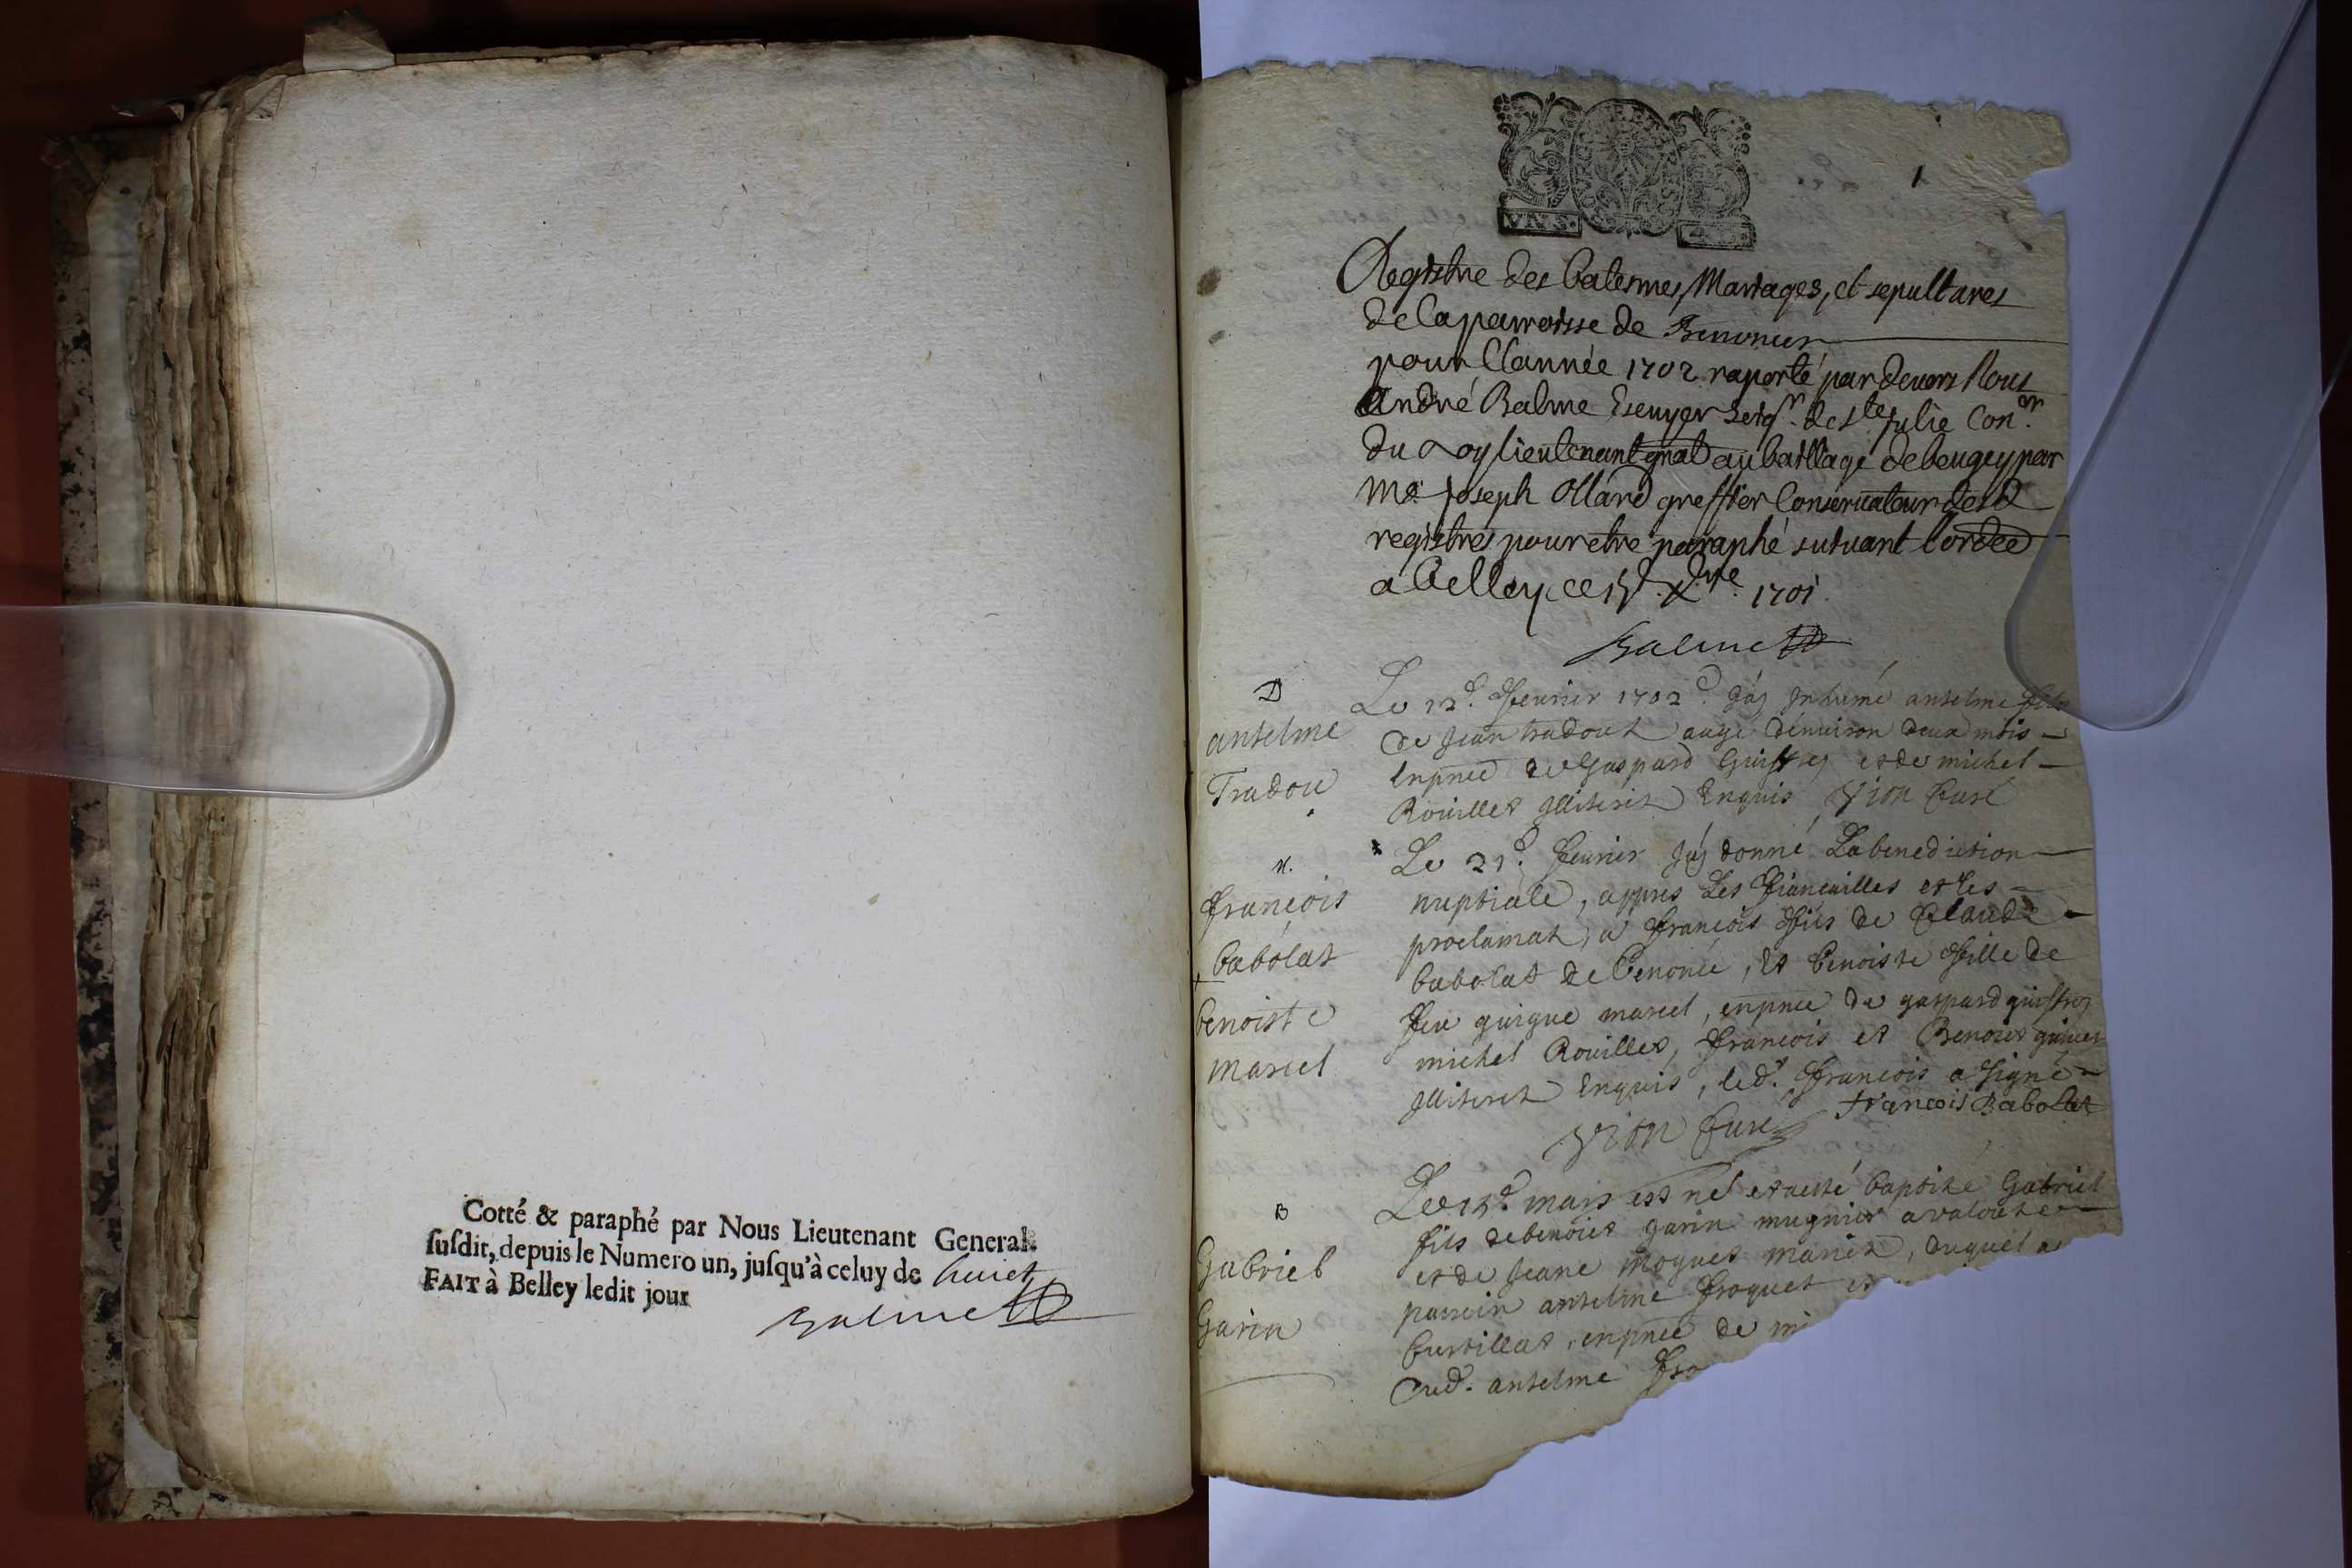 Cotté & paraphé par Nous Lieutenant General
ſuſdit, depuis le Numero un, juſqu'à celuy de huict
FAIT à Belley ledit jour
Balme
1
VN S.
Registre des batesmes, Mariages, et sepultures
de la parroisse de
pour Lannée 1702 raporté par devers Nous
André Balme Escuyer Seigr. de Ste Julie Coner.
du Roy lieutenant gnal au bailliage de beugey par
Me Joseph Ollard greffier Conservateur desd
registres pour etre paraphé suivant lordce
a Belley ce 15e. Xbre 1701.
Balme
D
anselme
Tradou
Le 12e. feurier 1702e. Jáj Inhumé anselme fils
de Jean tradout augé denuiron deux mois
Enpnce de Gaspard Guiffrej et de michel
Rouiller Illiteris Enquis Vion Curé
M.
françois
babolat
benoiste
Marcel
Le 21e. feurier Jáj donné La benediction
nuptiale, appres Les fiancailles et les
proclamat, a françois fils de Claude
babolat de Benonce, et benoiste fille de
feu guigue marcel, enpnce de gaspard guiffrej
michel Rouiller, francois et Benoict
Illiteris Enquis, led. francois a signé
francois Babolat
Vion Curé
B
Gabriel
Garin
Le 15e. mars est né et a esté baptisé Gabriel
fils de benoict garin mugnier a
et de Jeane moguet mariés, duquel a
parrein anselme froquet et
Curtillat, enpnce de mi
dud. anselme fro